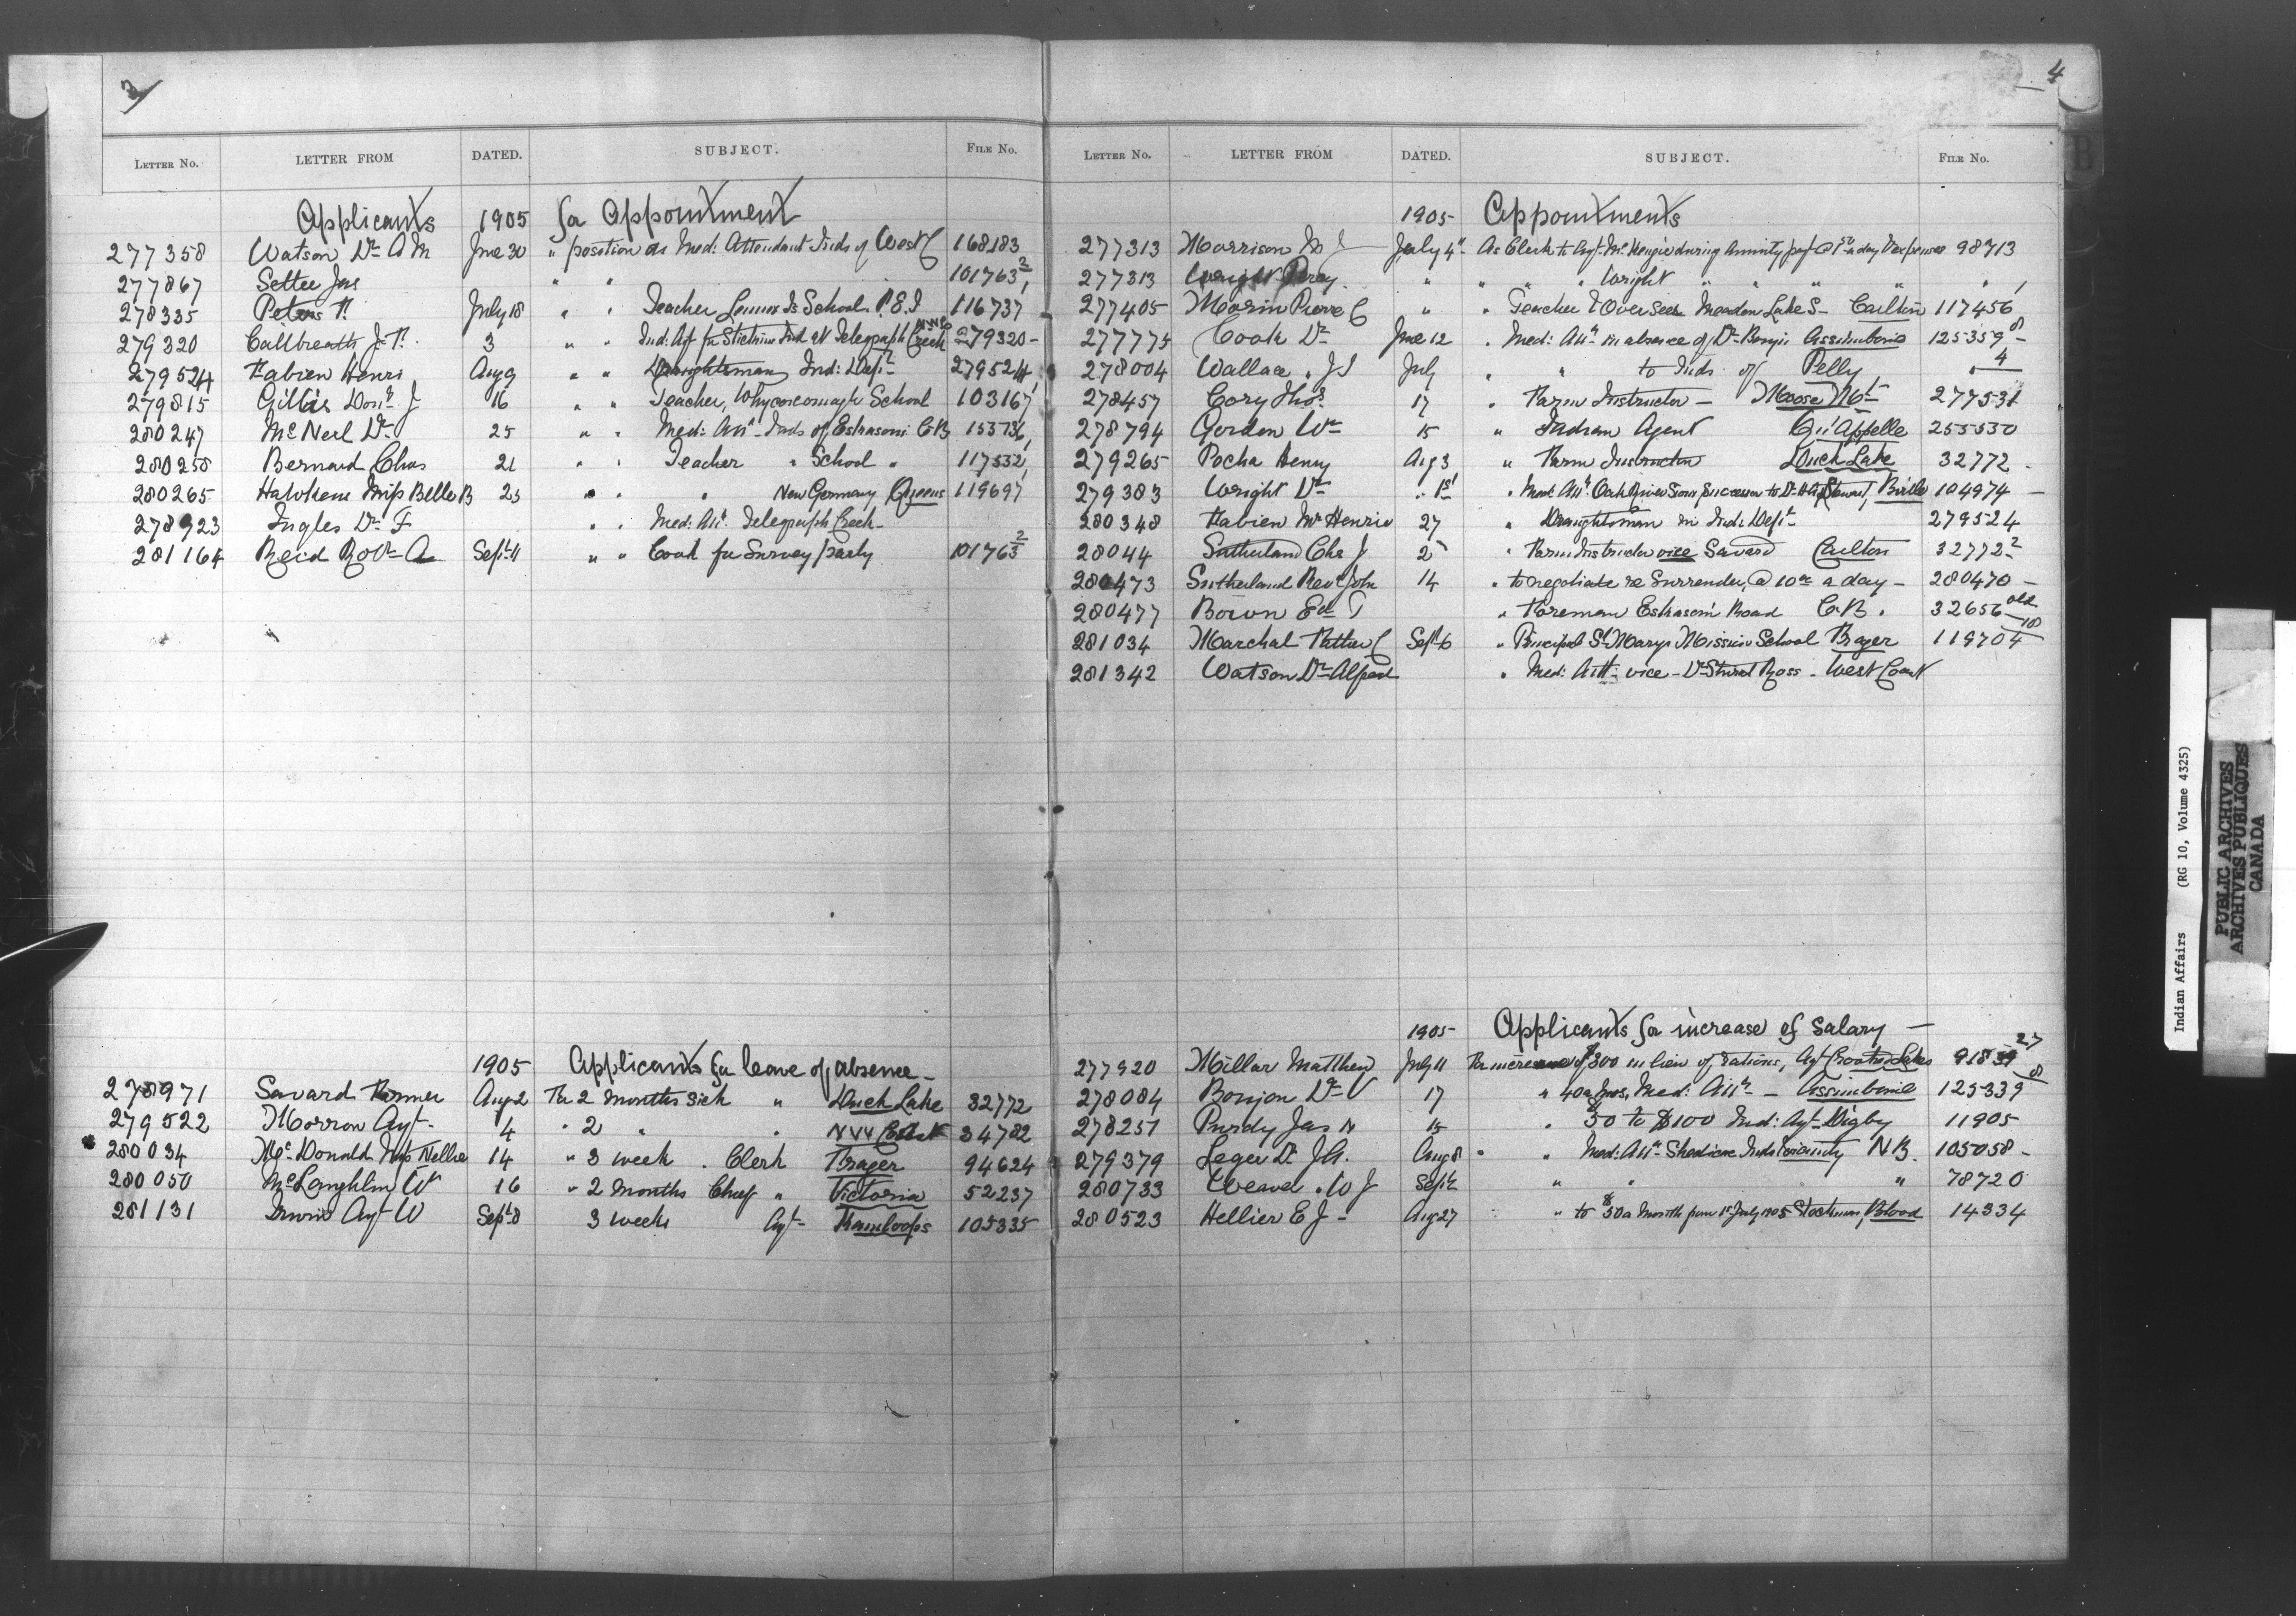 3
LETTER NO. LETTER FROM DATED. SUBJECT. FILE No.
Applicants 1905 for Appointment
277358 Watson Dr A M June 30 " position as Med: Attendant Inds of West C 168183
277867 Settee Jas " " 101763 2/1
278335 Peters T. July 18 " " Teacher Lennox Is School. P.E.I 116737
279320 Callbreath J. T. 3 " " Ind: Agt for Stickine Ind at Telegraph Creek 279320 -
279524 Fabien Henri Aug 9 " " Draughtsman Ind: Dept 279524
279815 Gillis Don J 16 " " Teacher, Whycocomagh School 103167
280247 McNeil Dr 25 " " Med: Att Inds of Eskasoni C.B 153736
280258 Bernard Chas 21 " " Teacher " School " 117532
280265 Hawkens Miss Belle B 23 " " " New Germany Queens 119697
278923 Ingles Dr F " " Med: Att. Telegraph Creek
281164 Reid Robt A Sept 11 " " Cook for Survey party 101763 2
1905 Applicants for leave of absence -
278971 Savard Farmer Aug 2 For 2 months sick " Duck Lake 32772
279522 Morrow Agt. 4 " 2 " " N W Coast 34782
280034 McDonald Miss Nellie 14 " 3 week . Clerk Fraser 94624
280050 McLaughlin W 16 " 2 months Chief " Victoria 52237
281131 Irwin Agt W Sept 8 3 weeks Agt Kamloops 105335
4
LETTER NO. LETTER FROM DATED. SUBJECT. FILE No.
1905 Appointments
277313 Morrison M J July 4 As Clerk to Agt. McKenzie during Annuity pay @ a day & expenses 98713
277313 Wright Percy " " " Wright " " " "
277405 Morin Pierre C " " Teacher & Overseer Meadow Lake S- Carlton 117456
277775 Cook Dr June 12 " Med: Att in absence of Dr Bonjn Assiniboine 125359 8 -
278004 Wallace . J S July " " to Inds of Pelly " 4
278457 Cory Thos. 17 " Farm Instructor - Moose Mt 277531
278794 Gordon Wm 15 " Indian Agent Qu'Appelle 255530
279265 Pocha Henry Aug 3 " Farm Instructor Duck Lake 32772 .
279383 Wright Dr " 1st " Med: Att Oak River Sioux Successor to Dr Stewart, Birtle 104974 -
280348 Fabien Mr Henri 27 " Draughtsman in Ind: Dept 279524
28044 Sutherland Chs J 25 " Farm Instructor vice Savard Carlton 32772 2
280473 Sutherland Revd John 14 " to negotiate re Surrender, @ 10.00 a day - 280470 -
280477 Bown Ed T " Foreman Eskasoni Road C.B. 32656 old
281034 Marchal Father C Sept 6 " Principal St Marys Mission School Fraser 119704 10
281342 Watson Dr Alfred " Med: Att - vice - Dr Stuart Ross - West Coast
1905 Applicants for increase of Salary -
277920 Millar Matthew July 11 For increase of $300 in lieu of rations, Agt Crooked Lakes 91839 27
278084 Bonjon Dr V 17 " 40 a mos, Med: Att - Assiniboine 125339 8
278251 Purdy Jas H 15 " 50 to $100 Ind: Agt Digby 11905
279379 Leger Dr J. A. Aug 8 " " Med: Att - Shediac Inds vicinity N B. 105058 -
280733 Weaver . W J Sept 2 " " " 78720
280523 Hellier E J - Aug 27 " to $50 a month from 1st July 1905 Stockman, Blood 14334
Indian Affairs (RG 10, Volume 4325)
PUBLIC ARCHIVES
ARCHIVES PUBLIQUES
CANADA